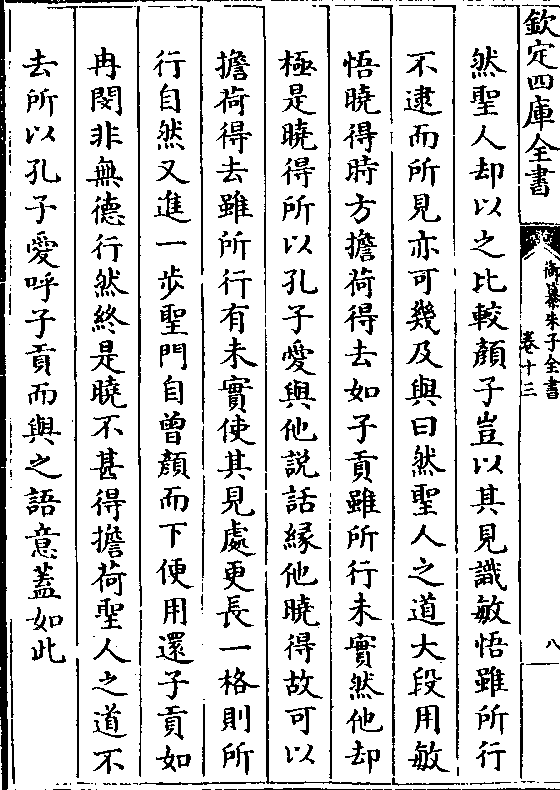 欽定四庫全書
御纂朱子全書
卷十三
八
然聖人却以之比較顔子豈以其見識敏悟雖所行
不逮而所見亦可幾及與曰然聖人之道大段用敏
悟曉得時方擔荷得去如子貢雖所行未實然他却
極是曉得所以孔子愛與他説話縁他曉得故可以
擔荷得去雖所行有未實使其見處更長一格則所
行自然又進一步聖門自曾顔而下便用還子貢如
冉閔非無德行然終是曉不甚得擔荷聖人之道不
去所以孔子愛呼子貢而與之語意蓋如此